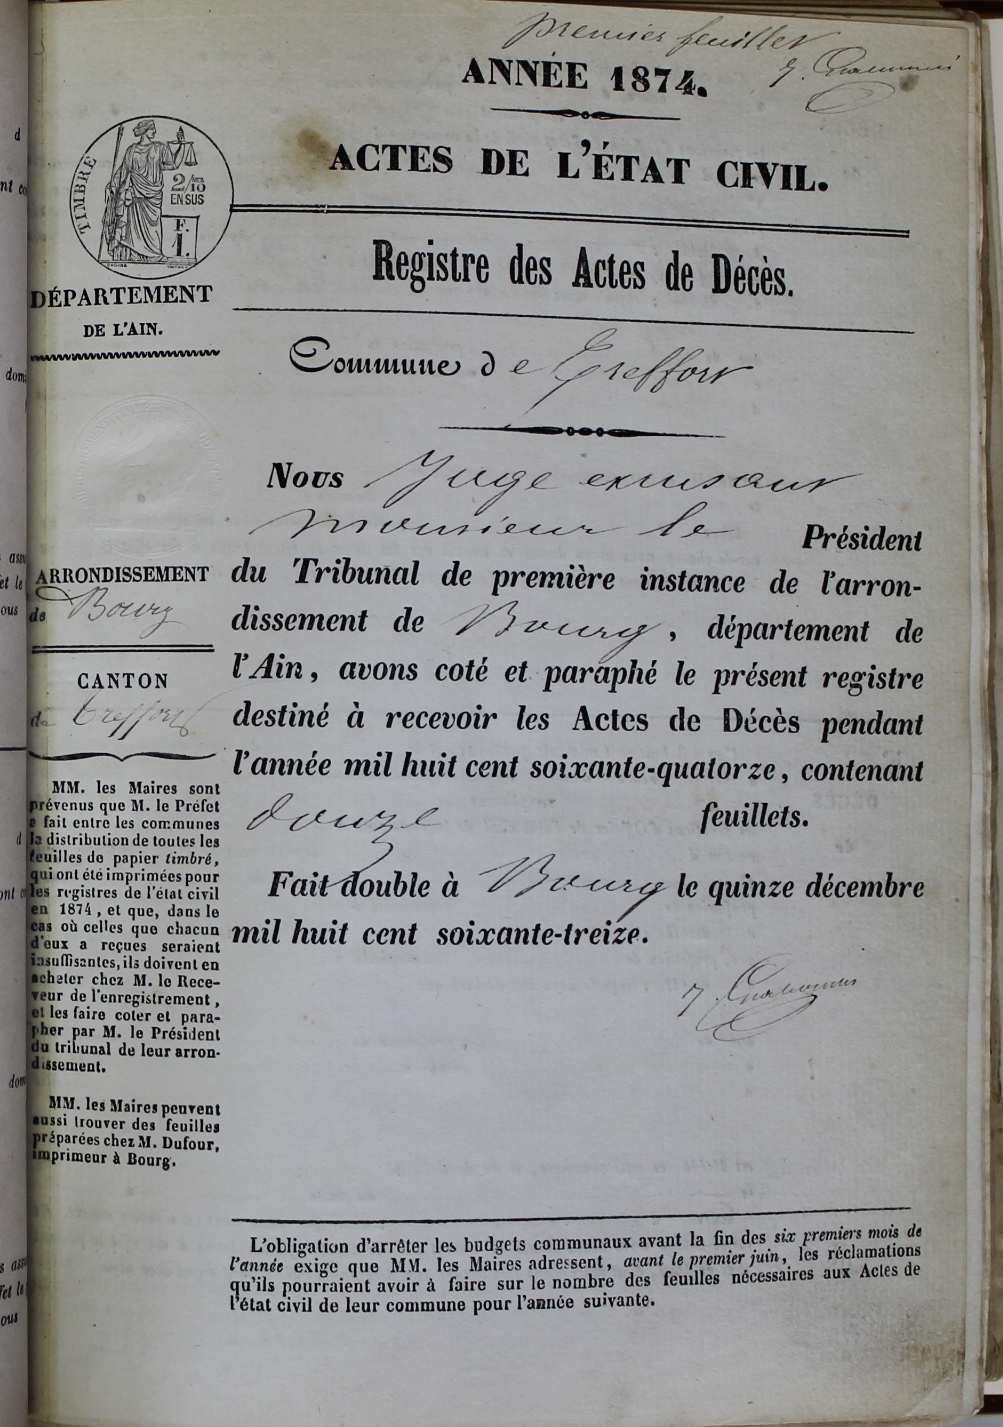 premier feuillet
ANNÉE 1874.
ACTES DE L'ÉTAT CIVIL.
TIMBRE
2/10
EN SUS
F.
1.
Registre des Actes de Décès.
DÉPARTEMENT
DE L'AIN.
Commune de Treffort
Nous Juge excusant
monsieur le Président
du Tribunal de première instance de l'arron-
dissement de Bourg, département de
l'Ain, avons coté et paraphé le présent registre
destiné à recevoir les Actes de Décès pendant
l'année mil huit cent soixante-quatorze, contenant
douze feuillets.
Fait double à Bourg le quinze décembre
mil huit cent soixante-treize.
ARRONDISSEMENT
de Bourg
CANTON
de Treffort
MM. les Maires sont
prévenus que M. le Préfet
a fait entre les communes
la distribution de toutes les
feuilles de papier timbré,
qui ont été imprimées pour
les registres de l'état civil
en 1874, et que, dans le
cas où celles que chacun
d'eux a reçues seraient
insuffisantes, ils doivent en
acheter chez M. le Rece-
veur de l'enregistrement,
et les faire coter et para-
pher par M. le Président
du tribunal de leur arron-
dissement.
MM. les Maires peuvent
aussi trouver des feuilles
préparées chez M. Dufour,
imprimeur à Bourg.
L'obligation d'arrêter les budgets communaux avant la fin des six premiers mois de
l'année exige que MM. les Maires adressent, avant le premier juin, les réclamations
qu'ils pourraient avoir à faire sur le nombre des feuilles nécessaires aux Actes de
l'état civil de leur commune pour l'année suivante.